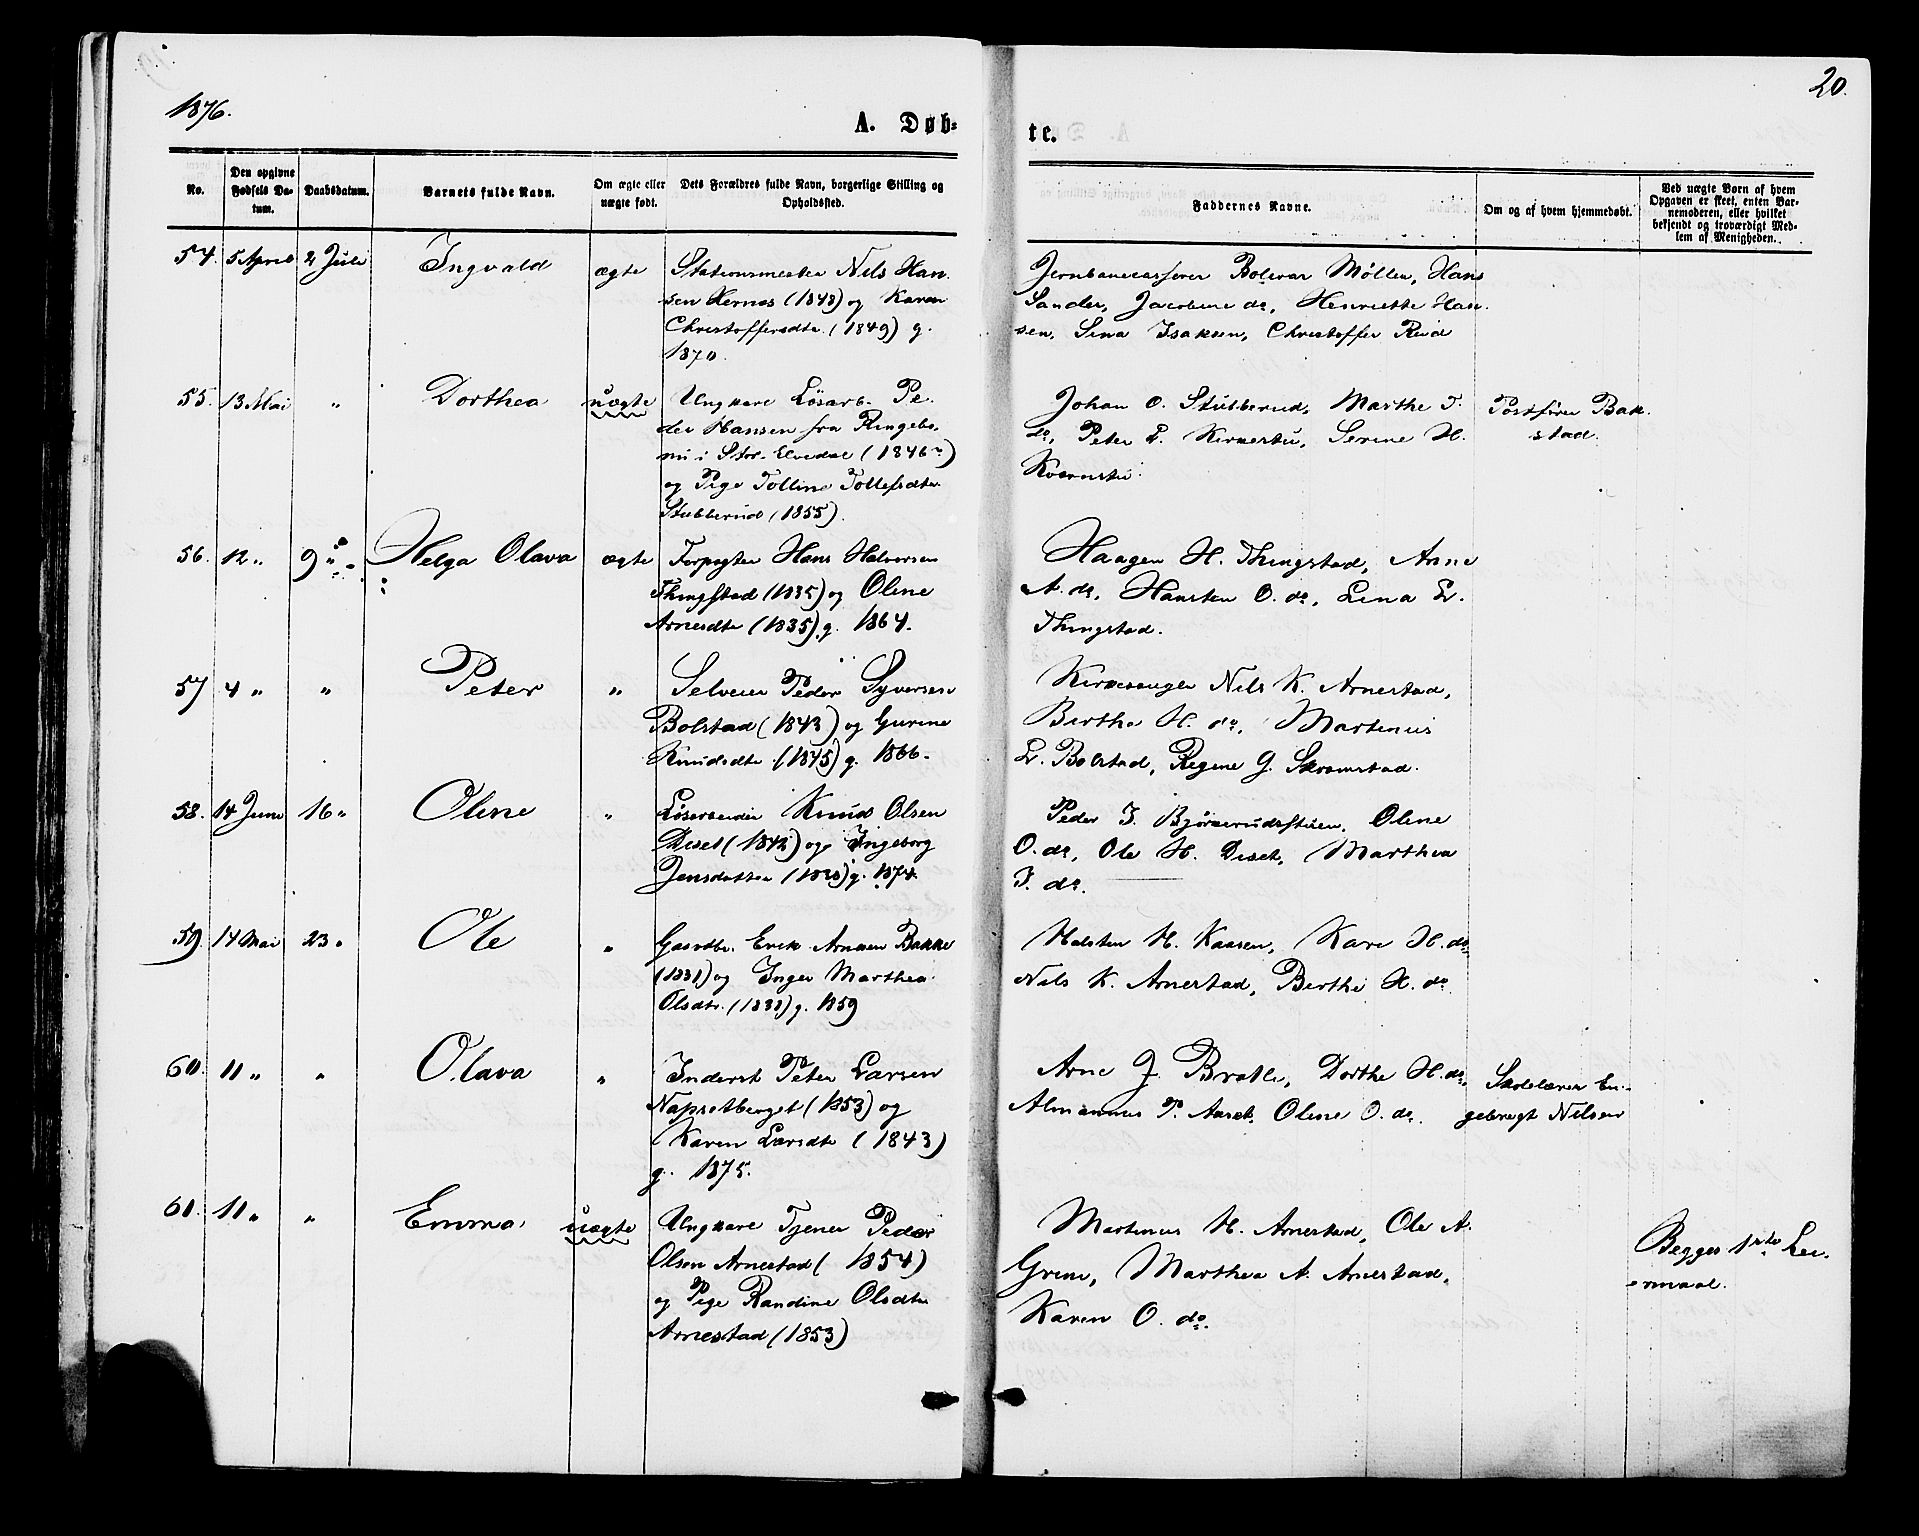 1876.
20.
A. Døb-
te.
No.
Den opgivne Fødsels Da-tum.
Daabsdatum.
Barnets fulde Navn.
Om ægte eller uægte født.
Dets Forældres fulde Navn, borgerlige Stilling og Opholdssted.
Faddernes Navne.
Om og af hvem hjemmedøbt.
Ved uægte Børn af hvem Opgaven er skeet, enten Bar-nemoderen, eller hvilket bekjendt og troværdigt Med-lem af Menigheden.
54. 5 April 2 Juli Ingvald ægte
Stationsmester Nils Han-
sen (1848) og Karen
Christoffersdtr. (1849) g.
1870.
Møller, Hans
Sander, Jacobine do, Henriette Han-
sen, Sina Isaksen, Christoffer
55. 13 Mai " Dorthea uægte
Ungkarl Løsarb. Pe-
der Hansen fra Ringebo,
nu i Stor-Elvedal (1846)
og Pige Tolline Tollefsdtr.
Stubberud (1855).
Johan O. Stubberud, Marthe T.
do, Peter L. Serine H.
Kværnstu.
stad.
56. 12 " 9 " Helga Olava ægte
Forpagter Hans Halvorsen
Thingstad (1835) og Oline
Arnesdtr (1835) g. 1864.
Haagen H. Thingstad, Anne
A. do, Hansten O. do, Lina L.
Thingstad.
57 4 " " Peter "
Selveier Peder Syversen
Bolstad (1843) og Gurine
Knudsdtr (1845) g. 1866.
Kirkesanger Nils K. Arnestad,
Berthe H. do, Martinus
L. Bolstad, Regine G. Skramstad.
58. 14 Juni 16 " Oline "
Løsarbeider Knud Olsen
Diset (1842) og Ingeborg
Jensdatter g. 1874.
Peder J. Oline
O. do, Ole H. Diset, Marthea
J. do.
59. 14 Mai 23 " Ole "
Gaardbr. Erik Arnesen Bakke
(1831) og Inger Marthea
Olsdtr. (1838) g. 1859
Halsten H. Kaasen, Kari H. do
Nils K. Arnestad, Berthe H. do
60. 11 " " Olava "
Inderst Peter Larsen
Napsetberget (1853) og
Karen Larsdtr (1843)
g. 1875.
Arne J. Bratli, Dorthe H. do,
Almannus P. Aaset, Oline O. do.
Skolelærer En-
gebregt Nilsen
61. 11 " " Emma uægte
Ungkarl Tjener Peder
Olsen Arnestad (1854)
og Pige Randine Olsdtr
Arnestad (1853)
Martinus H. Arnestad, Ole A.
Grini, Marthea A. Arnestad,
Karen O. do.
Begges 1ste Lei-
ermaal.